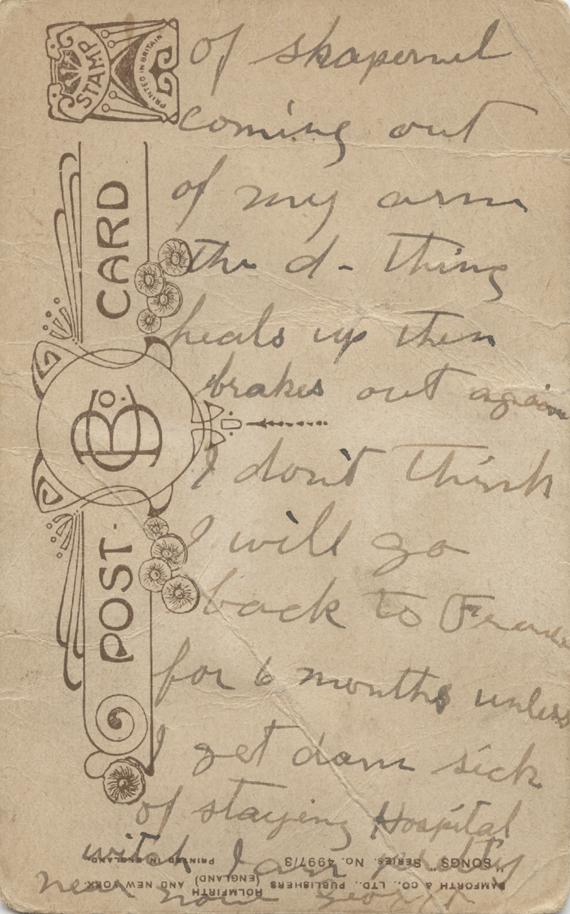 of skapernel
coming out
of my arm
the d- thing
heals up then
brakes out again
I don't think
I will go
back to France
for 6 months unless
I get dam sick
of staying Hospital
witch I am pretty
near now George
STAMP
PRINTED IN BRITAIN
POST-CARD
B Co.
BAMFORTH & CO., LTD., PUBLISHERS
HOLMFIRTH (ENGLAND) AND NEW YORK
"SONGS" SERIES. No. 4997/3
PRINTED IN ENGLAND